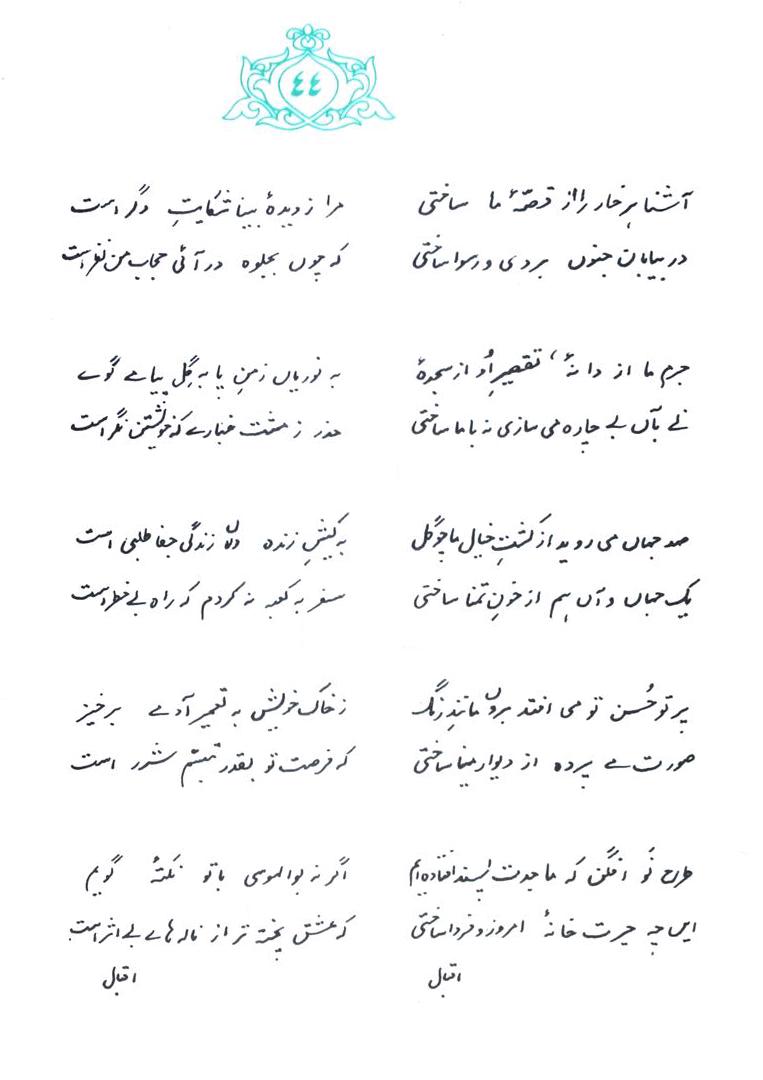 ٤٤
آشنا ہر خار را از قصۂ ما ساختی
در بیابانِ جنوں بردی و رسوا ساختی
جرم ما از دانۂ، تقصیرِ اُو از سجدۂ
نے بآں بے چارہ می سازی نہ با ما ساختی
صد جہاں می روید از کشتِ خیالِ ما چو گل
یک جہاں و آں ہم از خونِ تمنا ساختی
پرتو حُسن تو می افتد بروں مانندِ رنگ
صورت مے پردہ از دیوار مینا ساختی
طرح نَو افگن کہ ما جدت پسند افتادہ ایم
ایں چہ حیرت خانۂ امروز و فردا ساختی
اقبال
مرا ز دیدۂ بینا شکایتِ دگر است
کہ چوں بجلوہ در آئی حجاب من نظر است
بہ نوریاں ز منِ پا بہ گِل پیامے گوے
حذر ز مشت غبارے کہ خویشتن نگر است
بہ کیشِ زندہ دلاں زندگی جفا طلبی است
سفر بہ کعبہ نہ کردم کہ راہ بے خطر است
ز خاک خویش بہ تعمیر آدمے برخیز
کہ فرصت تو بقدر تبسّم شرر است
اگر نہ بوالہوسی با تو نکتۂ گویم
کہ عشق پختہ تر از نالہ ہاے بے اثر است
اقبال